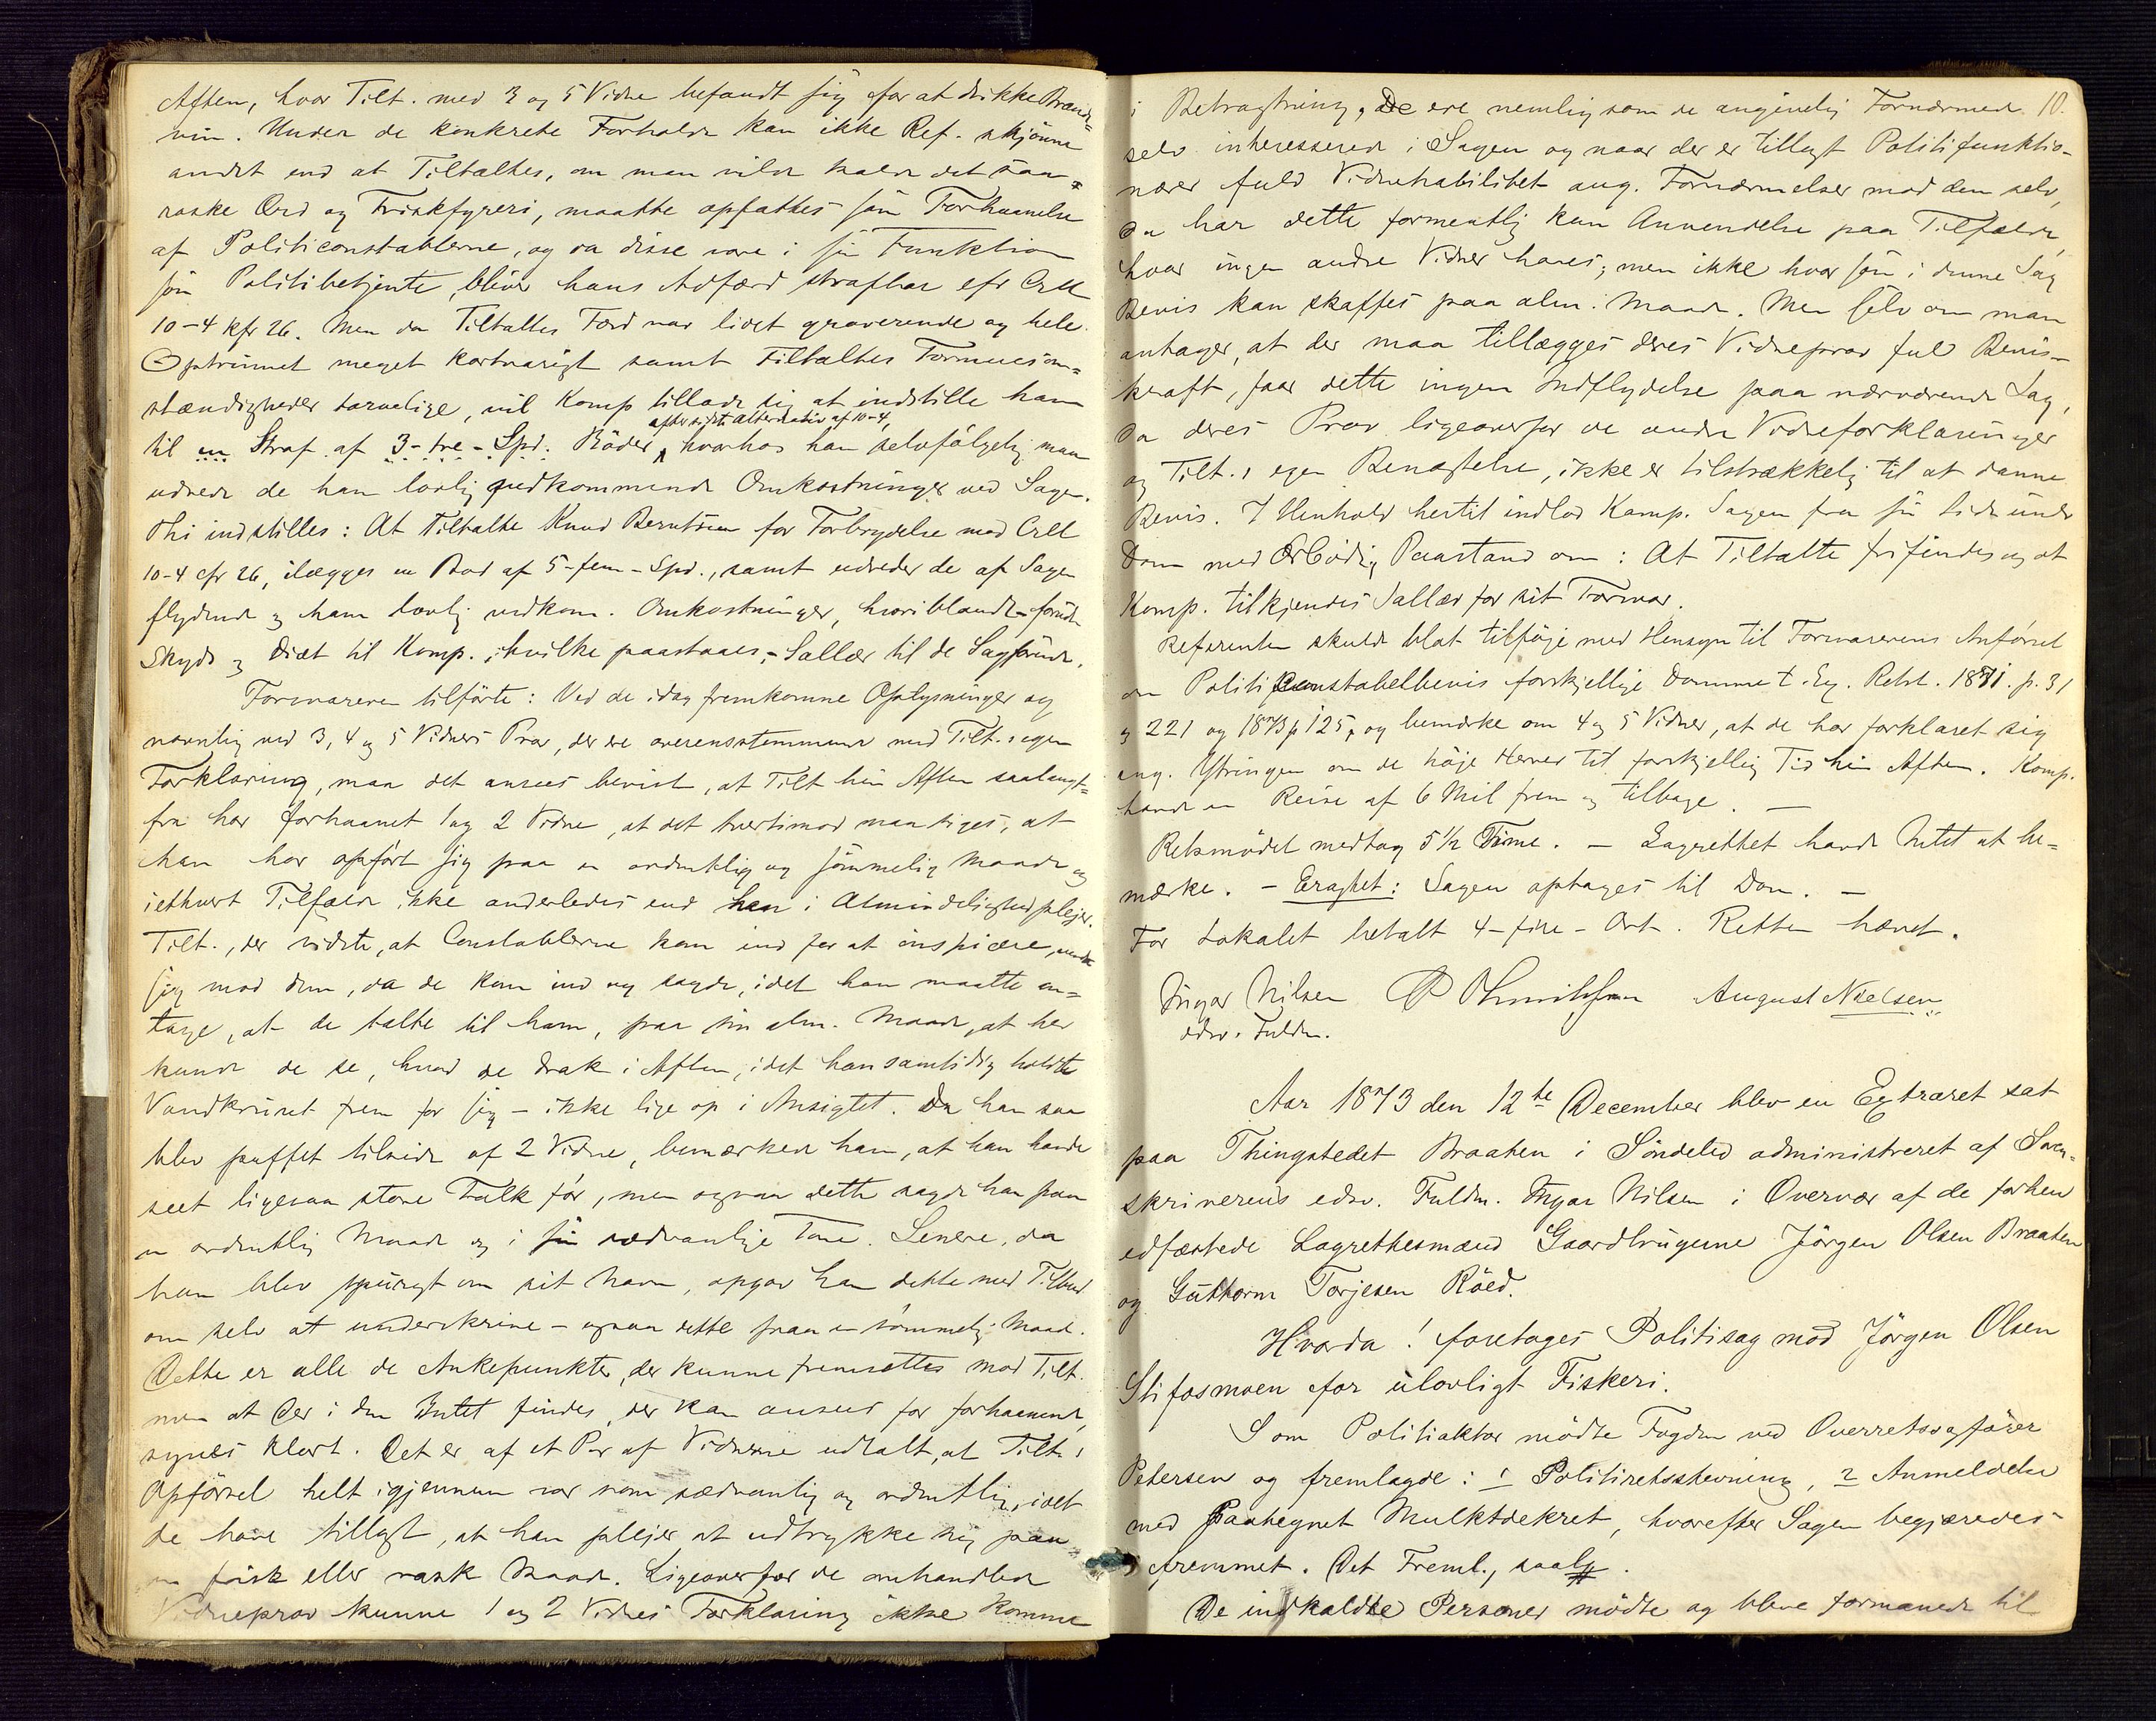 Aften, hvor Tilt. med 3 og 5 Vidne befandt sig for at drikke Brænde-
vin. Under de konkrete Forholde kan ikke Ref. skjønne
andet end at Tiltaltes, om man vilde kalde det saa,
raske Ord og Friskfyreri, maatte opfattes som Forhaanelse
af Politiconstablerne, og da disse vare i sin Funktion
som Politibetjente, bliver hans Adfærd strafbar efr Crll
10-4 kfr 26. Men da Tiltaltes Ford var lidet graverende og hele
Optrinnet meget kortvarigt samt Tiltaltes Formuesom-
stændigheder tarvelige, vil Komp tillade sig at indstille ham
til en Straf af 3-tre-Spd. Bøder, efter sidste Alternativ af 10-4, hvorhos han selvfølgelig maa
udrede de ham lovlig vedkommende Omkostninger ved Sagen.
Thi indstilles: At Tiltalte Knud Berntsen for Forbrydelse mod Crll
10-4 cfr 26, ilægges en Bod af 5-fem-Spd., samt udreder de af Sagen
flydende og ham lovlig vedkom. Omkostninger, hvoriblandt - foruden
Skyds og Diæt til Komp., hvilke paastaaes, - Sallær til de Sagførende.
Forsvareren tilførte: Ved de idag fremkomne Oplysninger og
navnlig ved 3, 4 og 5 Vidners Prov, der ere overensstemmende med Tilt.s egen
Forklaring, maa det ansees bevist, at Tilt hin Aften saalangt-
fra har forhaanet 1 og 2 Vidne, at det tvertimod maa siges, at
han har opført sig paa en ordentlig og sømmelig Maade og
iethvert Tilfælde ikke anderledes end han i Almindelighed plejer.
Tilt., der vidste, at Constablerne kom ind for at inspicere, vendte
sig mod dem, da de kom ind og sagde, idet han maatte an-
tage, at de talte til ham, paa sin alm. Maade, at her
kunde de se, hvad de drak i Aften, idet han samtidig holdte
Vandkruset frem for sig - ikke lige op i Ansigtet. Da han saa
blev puffet tilside af 2 Vidne, bemærkede han, at han havde
seet ligesaa store Folk før, men ogsaa dette sagde han paa
en ordentlig Maade og i sin sædvanlige Tone. Senere, da
han blev spurgt om sit Navn, opgav han dette med Tilbud
om selv at underskrive - ogsaa dette paa en sømmelig Maade.
Dette er alle de Ankepunkter, der kunne fremsættes mod Tilt.
men at der i dem Intet findes, der kan ansees for forhaanende,
synes klart. Det er af et Par af Vidnerne udtalt, at Tilt.s
Opførsel helt igjennem var som sædvanlig og ordentlig, idet
de have tillagt, at han plejer at udtrykke sig paa
en frisk eller rask Maade. Ligeoverfor de omhandlede
Vidneprov kunne 1 og 2 Vidnes Forklaring ikke komme
10.
i Betragtning, De ere nemlig som de angivelig Fornærmede
selv interesserede i Sagen og naar der er tillagt Politifunktio-
nærer fuld Vidnehabilitet ang. Fornærmelser mod dem selv,
da har dette formentlig kun Anvendelse paa Tilfælde,
hvor ingen andre Vidner haves, men ikke hvor som i denne Sag
Bevis kan skaffes paa alm. Maade. Men selv om man
antager, at der maa tillægges deres Vidneprov fuld Bevis-
kraft, faar dette ingen Indflydelse paa nærværende Sag,
da deres Prov ligeoverfor de andre Vidneforklaringer
og Tilt.s egen Benægtelse, ikke er tilstrækkelig til at danne
Bevis. I Henhold hertil indlod Komp. Sagen fra sin Side under
Dom med Ærbødig Paastand om: At Tiltalte frifindes og at
Komp. tilkjendes Sallær for sit Forsvar.
Referenten skulde blot tilføje med Hensyn til Forsvarerens Anførsel
om Politiconstabelbevis forskjellige Domme t. Ex. Retst. 1871. p. 31
og 221 og 1873 p 125, og bemærke om 4 og 5 Vidner, at de har forklaret sig
ang. Ytringen om de høje Herrer til forskjellig Tid hin Aften. Komp.
havde en Reise af 6 Mil frem og tilbage. —
Retsmødet medtog 5 1/2 Time. — Lagrettet havde Intet at be-
mærke. - Eragtet: Sagen optages til Dom. —
For Lokalet betalt 4-fire-Ort. Retten hævet.
Ingar Nilsen August Nielsen
edsv. Fuldm.
Aar 1873 den 12te December blev en Extraret sat
paa Thingstedet Braaten i Søndeled administreret af Soren-
skriverens edsv. Fuldm. Ingar Nilsen i Overvær af de forhen
edfæstede Lagrettesmænd Gaardbrugerne Jørgen Olsen Braaten
og Guttorm Torjesen Røed.
Hvorda! foretages Politisag mod Jørgen Olsen
Stifosmoen for ulovligt Fiskeri.
Som Politiaktor mødte Fogden ved Overretssagfører
Petersen og fremlagde: 1 Politiretsstevning, 2 Anmeldelse
med Paategnet Mulktdekret, hvorefter Sagen begjæredes
fremmet. Det Freml., saal.
De indkaldte Personer mødte og bleve formanede til